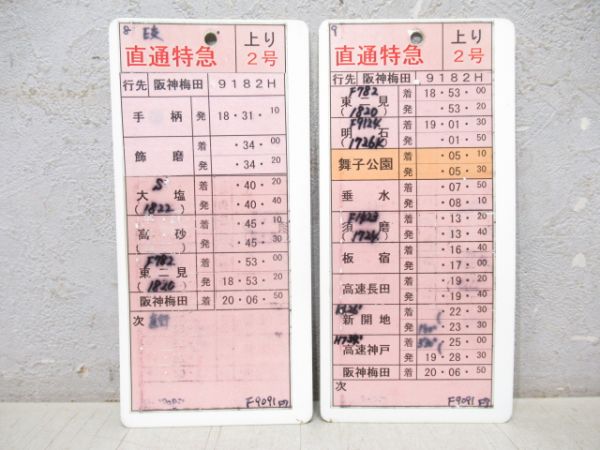 8
直通特急 上り
2号
行先 阪神梅田 9182H
手柄 発 18・31・10
飾磨 着 ・34・00
発 ・34・20
S
大塩 着 ・40・20
(1822) 発 ・40・40
高砂 着 ・45・10
( ) 発 ・45・30
F782
東二見 着 ・53・00
(1820) 発 18・53・20
阪神梅田 着 20・06・50
次
F9091
9
直通特急 上り
2号
行先 阪神梅田 9182H
F782
東二見 着 18・53・00
(1820) 発 ・53・20
F912K
明石 着 19・01・30
(1726K) 発 ・01・50
舞子公園 着 ・05・10
発 ・05・30
垂水 着 ・07・50
発 ・08・10
須磨 着 ・13・20
発 ・13・40
板宿 着 ・16・40
発 ・17・00
高速長田 着 ・19・20
発 ・19・40
新開地 着 ・22・30
発 ・23・30
高速神戸 着 ・25・00
発 19・28・30
阪神梅田 着 20・06・50
次
F9091